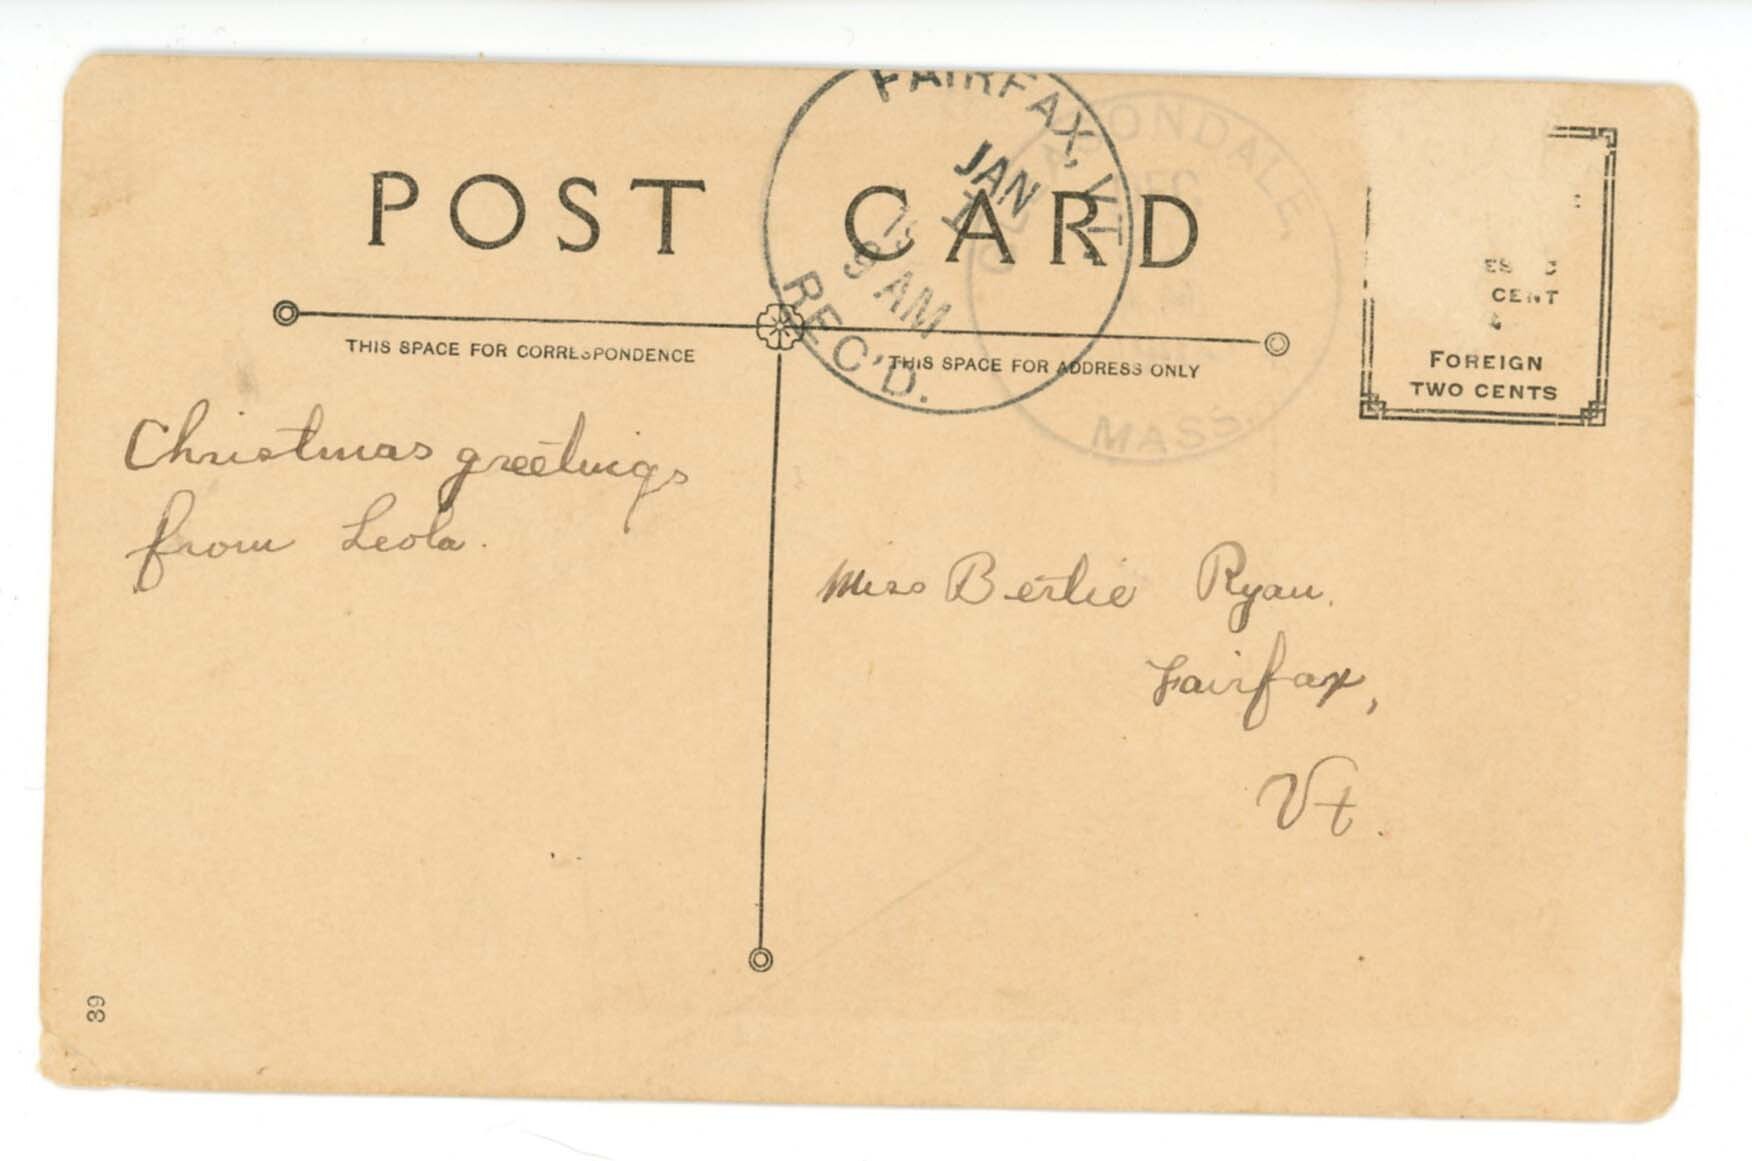 POST CARD
FAIRFAX, VT.
JAN
9 AM
REC'D.
MASS.
THIS SPACE FOR CORRESPONDENCE
THIS SPACE FOR ADDRESS ONLY
CENT
FOREIGN
TWO CENTS
Christmas greetings
from Leola.
Miss Bertie Ryan.
Fairfax,
Vt.
39